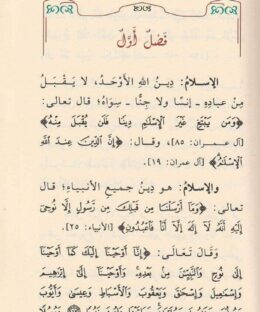 فَصْلٌ أَوَّلٌ
الإِسلامُ: دِينُ اللهِ الأَوْحَدُ، لا يَقْبَلُ
مِنْ عبادِهِ ـ إنسًا ولا جِنًّا ـ سِوَاهُ؛ قال تعالى:
﴿وَمَن يَبْتَغِ غَيْرَ الْإِسْلَامِ دِينًا فَلَن يُقْبَلَ مِنْهُ﴾
[آل عمران: ٨٥]، وقال: ﴿إِنَّ الدِّينَ عِندَ اللَّهِ
الْإِسْلَامُ﴾ [آل عمران: ١٩].
والإِسلامُ: هو دينُ جميعِ الأنبياءِ؛ قال
تعالى: ﴿وَمَا أَرْسَلْنَا مِن قَبْلِكَ مِن رَّسُولٍ إِلَّا نُوحِي
إِلَيْهِ أَنَّهُ لَا إِلَٰهَ إِلَّا أَنَا فَاعْبُدُونِ﴾ [الأنبياء: ٢٥].
وَقَالَ تَعَالَى: ﴿إِنَّا أَوْحَيْنَا إِلَيْكَ كَمَا أَوْحَيْنَا
إِلَىٰ نُوحٍ وَالنَّبِيِّينَ مِن بَعْدِهِ وَأَوْحَيْنَا إِلَىٰ إِبْرَاهِيمَ
وَإِسْمَاعِيلَ وَإِسْحَاقَ وَيَعْقُوبَ وَالْأَسْبَاطِ وَعِيسَىٰ وَأَيُّوبَ